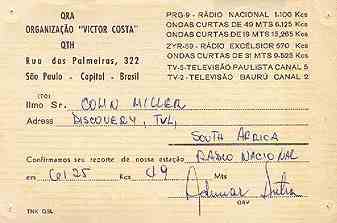 QRA
ORGANIZAÇÃO "VICTOR COSTA"
QTH
Rua das Palmeiras, 322
São Paulo - Capital - Brasil
PRG-9 - RÁDIO NACIONAL 1.100 Kcs
ONDAS CURTAS DE 49 MTS 6.125 Kcs
ONDAS CURTAS DE 19 MTS 15.265 Kcs
ZYR-59 - RÁDIO EXCÉLSIOR 570 Kcs
ONDAS CURTAS DE 31 MTS 9.585 Kcs
TV-5 TELEVISÃO PAULISTA CANAL 5
TV-2 TELEVISÃO BAURÚ CANAL 2
(TO)
Ilmo Sr. COLIN MILLER
Adress DISCOVERY, TVL,
SOUTH AFRICA
Confirmamos seu reporte de nossa estação RADIO NACIONAL
em 6125 Kcs 49 Mts
OPR
TNK QSL